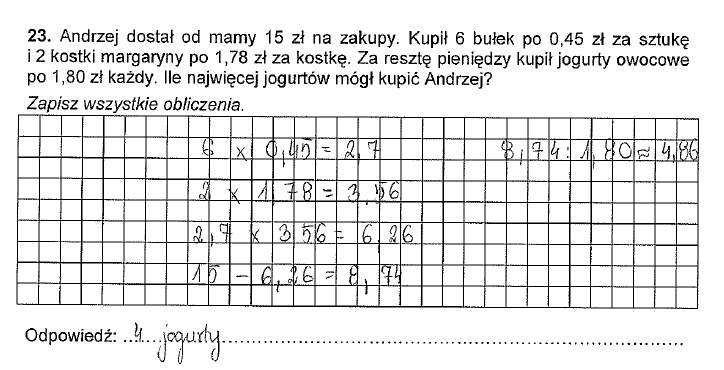 23. Andrzej dostał od mamy 15 zł na zakupy. Kupił 6 bułek po 0,45 zł za sztukę
i 2 kostki margaryny po 1,78 zł za kostkę. Za resztę pieniędzy kupił jogurty owocowe
po 1,80 zł każdy. Ile najwięcej jogurtów mógł kupić Andrzej?
Zapisz wszystkie obliczenia.
6 x 0,45 = 2,7 8,74 : 1,80 ≈ 4,86
2 x 1,78 = 3.56
2,7 x 3 56 = 6,26
15 - 6,26 = 8,74
Odpowiedź: ..4...jogurty